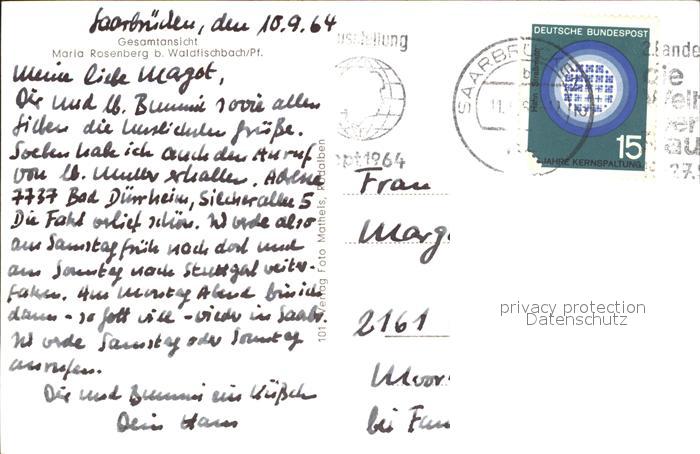 Saarbrücken, den 10.9.64
Gesamtansicht
Maria Rosenberg b. Waldfischbach/Pf.
Meine liebe Magot,
Dir und lb. Bummi sowie allen
Lieben die herzlichsten Grüße.
Soeben habe ich auch den Anruf
von lb. Mutter erhalten. Adresse
7737 Bad Dürrheim, Silcherallee 5
Die Fahrt verlief schön. Werde also
am Samstag früh nach dort und
am Sonntag nach Stuttgart weiter-
fahren. Am Montag Abend bin ich
dann - so Gott will - wieder in Saarbr.
Werde Samstag oder Sonntag
anrufen.
Dir und Bummi ein Küßchen
Dein Hans
101 Verlag Foto Mathels, Rodalben
usstellung
Sept 1964
SAARBRÜCK
b
DEUTSCHE BUNDESPOST
Hahn Straßmann
15
JAHRE KERNSPALTUNG
2.Landes
die
Frau
Marg
2161
Moor
bei Fam
privacy protection
Datenschutz